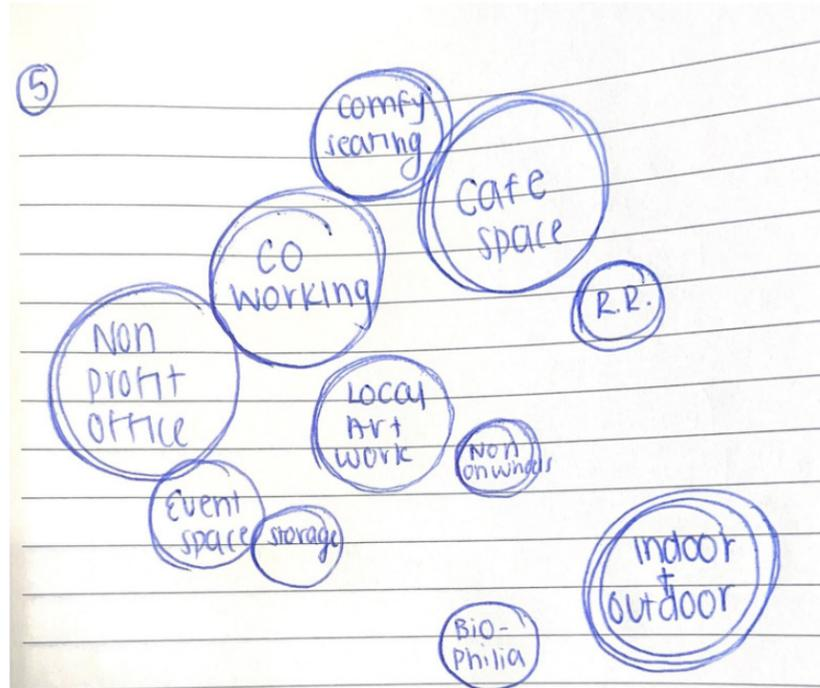 5
comfy
seating
cafe
space
CO
working
R.R.
Non
profit
office
Local
Art
work
Non
onwheels
Event
space
storage
indoor
+
outdoor
Bio-
Philia